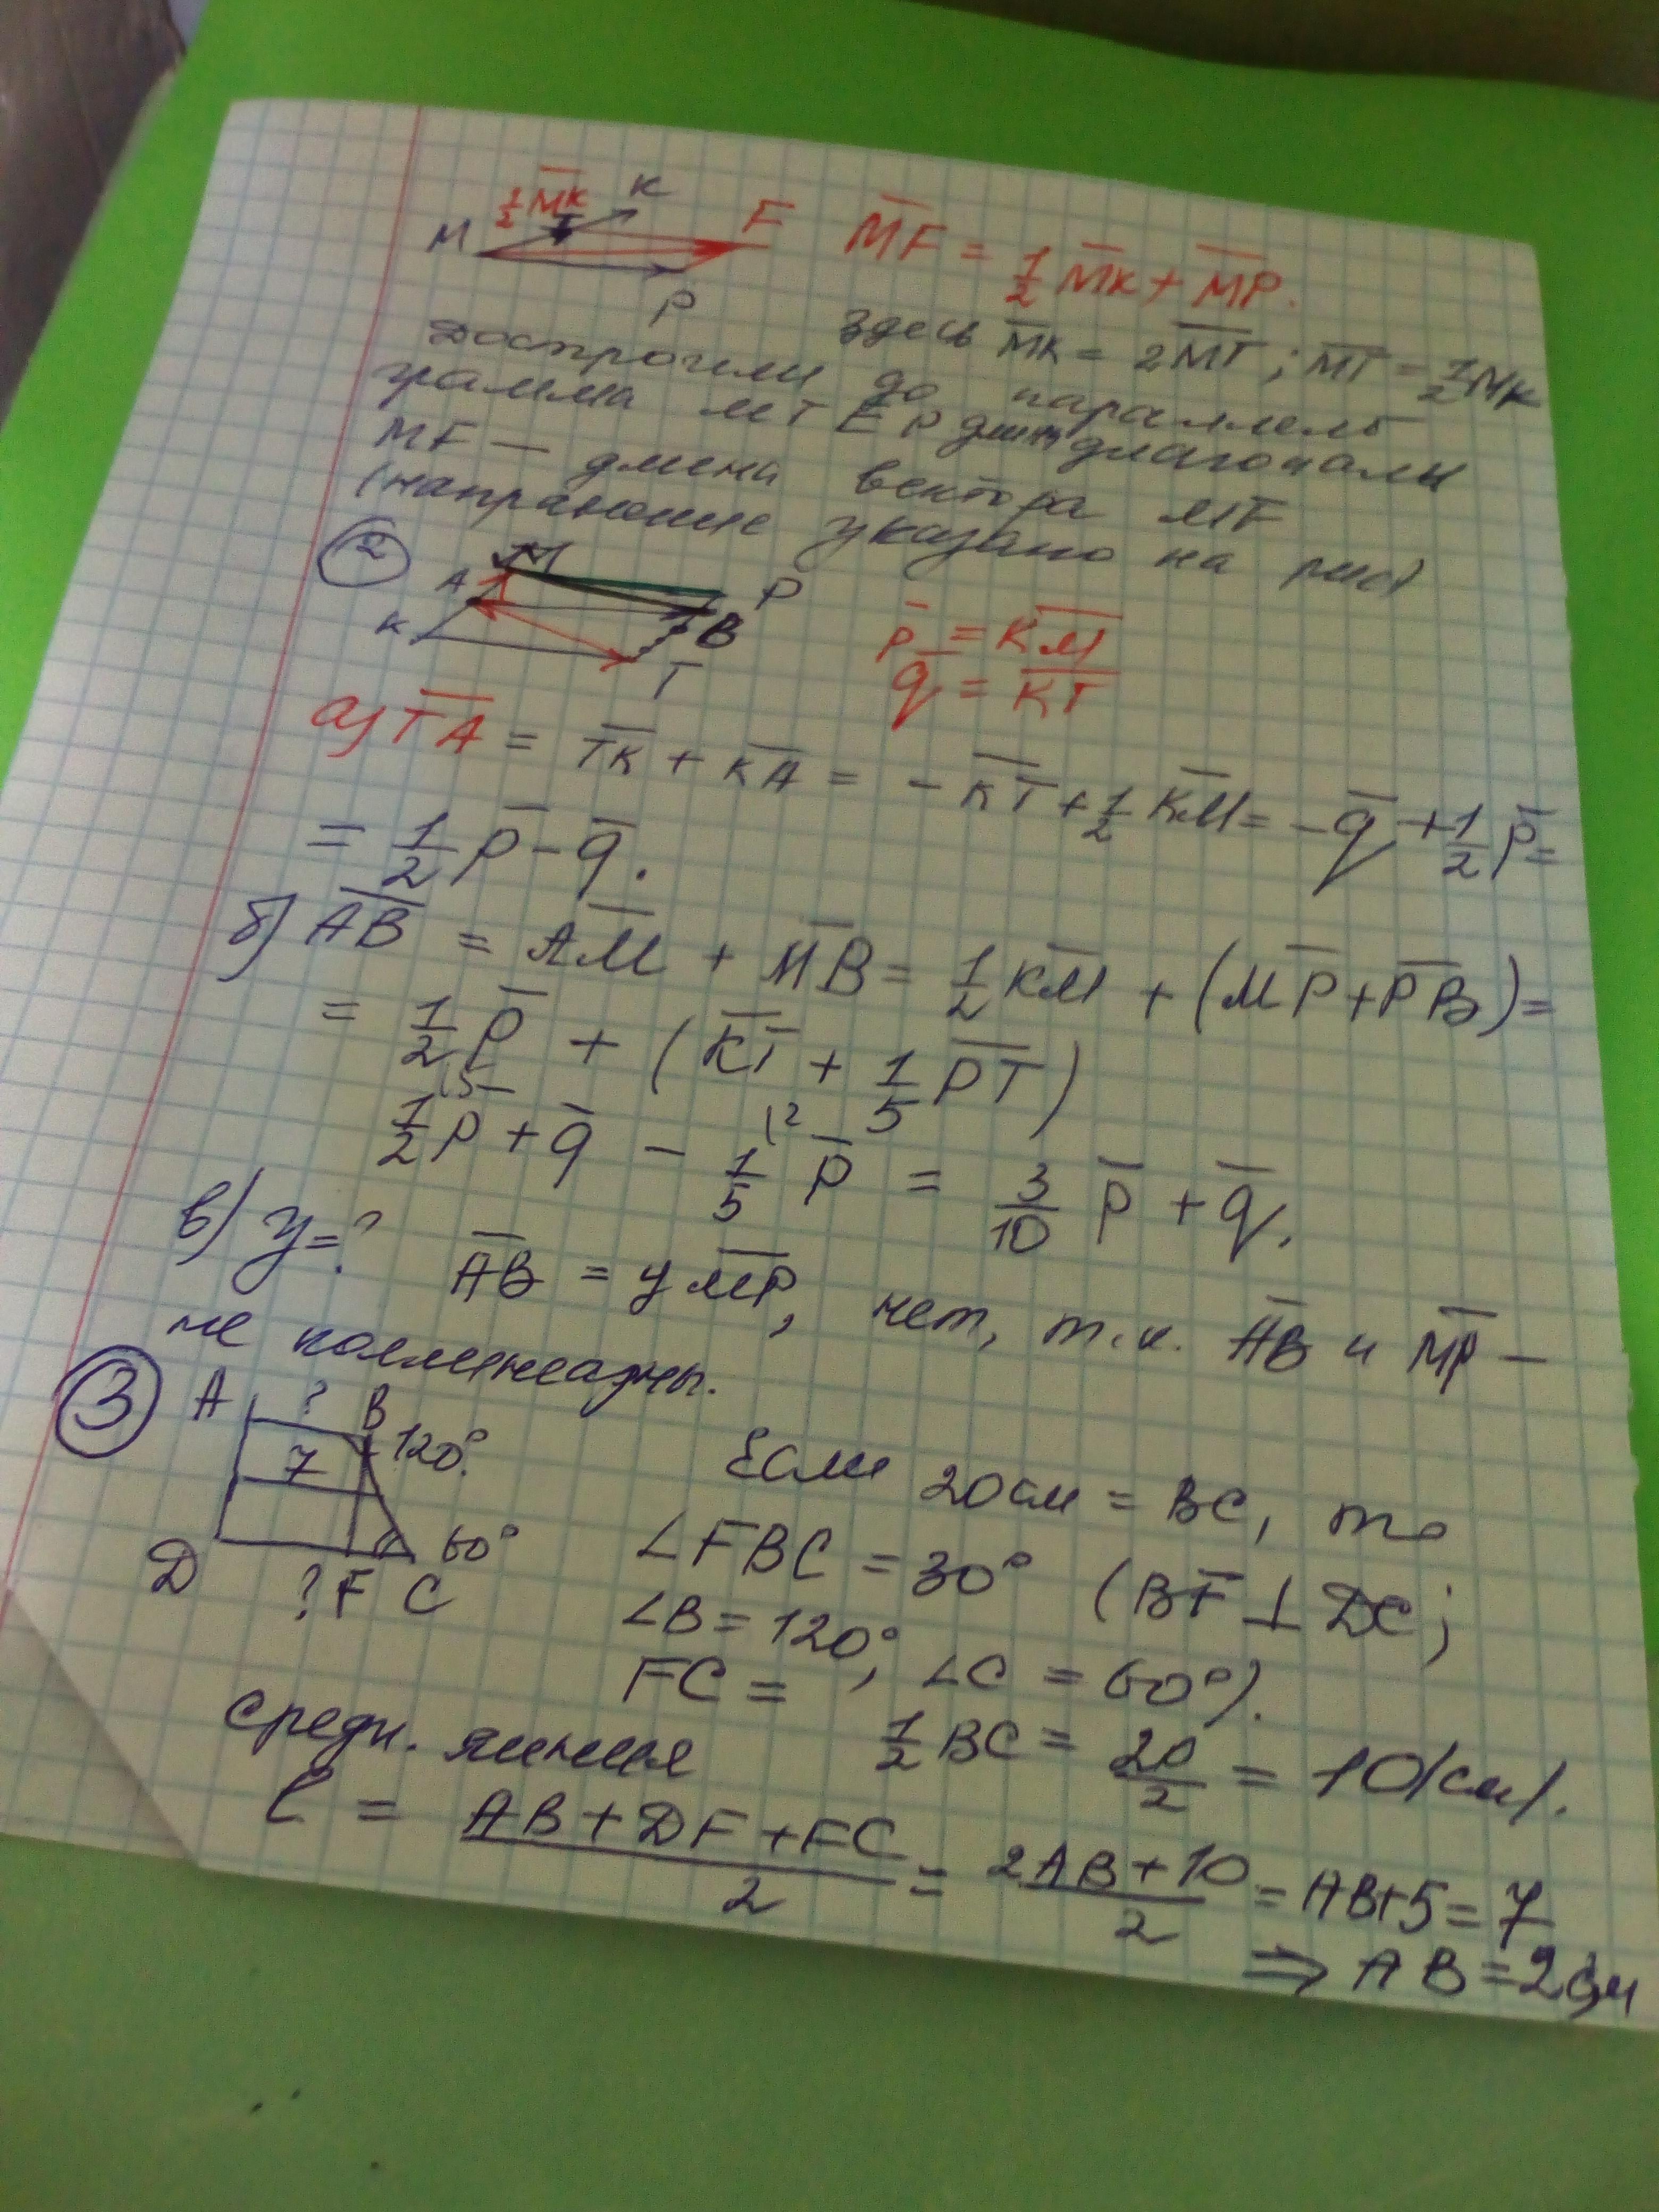 ½ MK K
M F MF = ½ MK + MP.
P
Здесь MK = 2MT; MT = ½ MK
Достроили до параллело
грамма MTFP диагонали
MF — длина вектора MF
(направление указано на рис)
2 M
A P
K B p = KM
T q = KT
а) TA = TK + KA = -KT + ½ KM = -q + ½ p =
= ½ p - q.
б) AB = AM + MB = ½ KM + (MP + PB) =
= ½ p + (KT + 1/5 PT)
½ p + q - 1/5 p = 3/10 p + q.
в) y = ? AB = y MP, нет, т.к. AB и MP —
не коллинеарны.
3 A ? B
7 120°.
D ? F C 60°
Если 20 см = BC, то
∠FBC = 30° (BF ⊥ DC;
∠B = 120°, ∠C = 60°).
FC = ½ BC = 20/2 = 10(см).
средн. линия
l = (AB + DF + FC)/2 = (2AB + 10)/2 = AB + 5 = 7
⇒ AB = 2 см